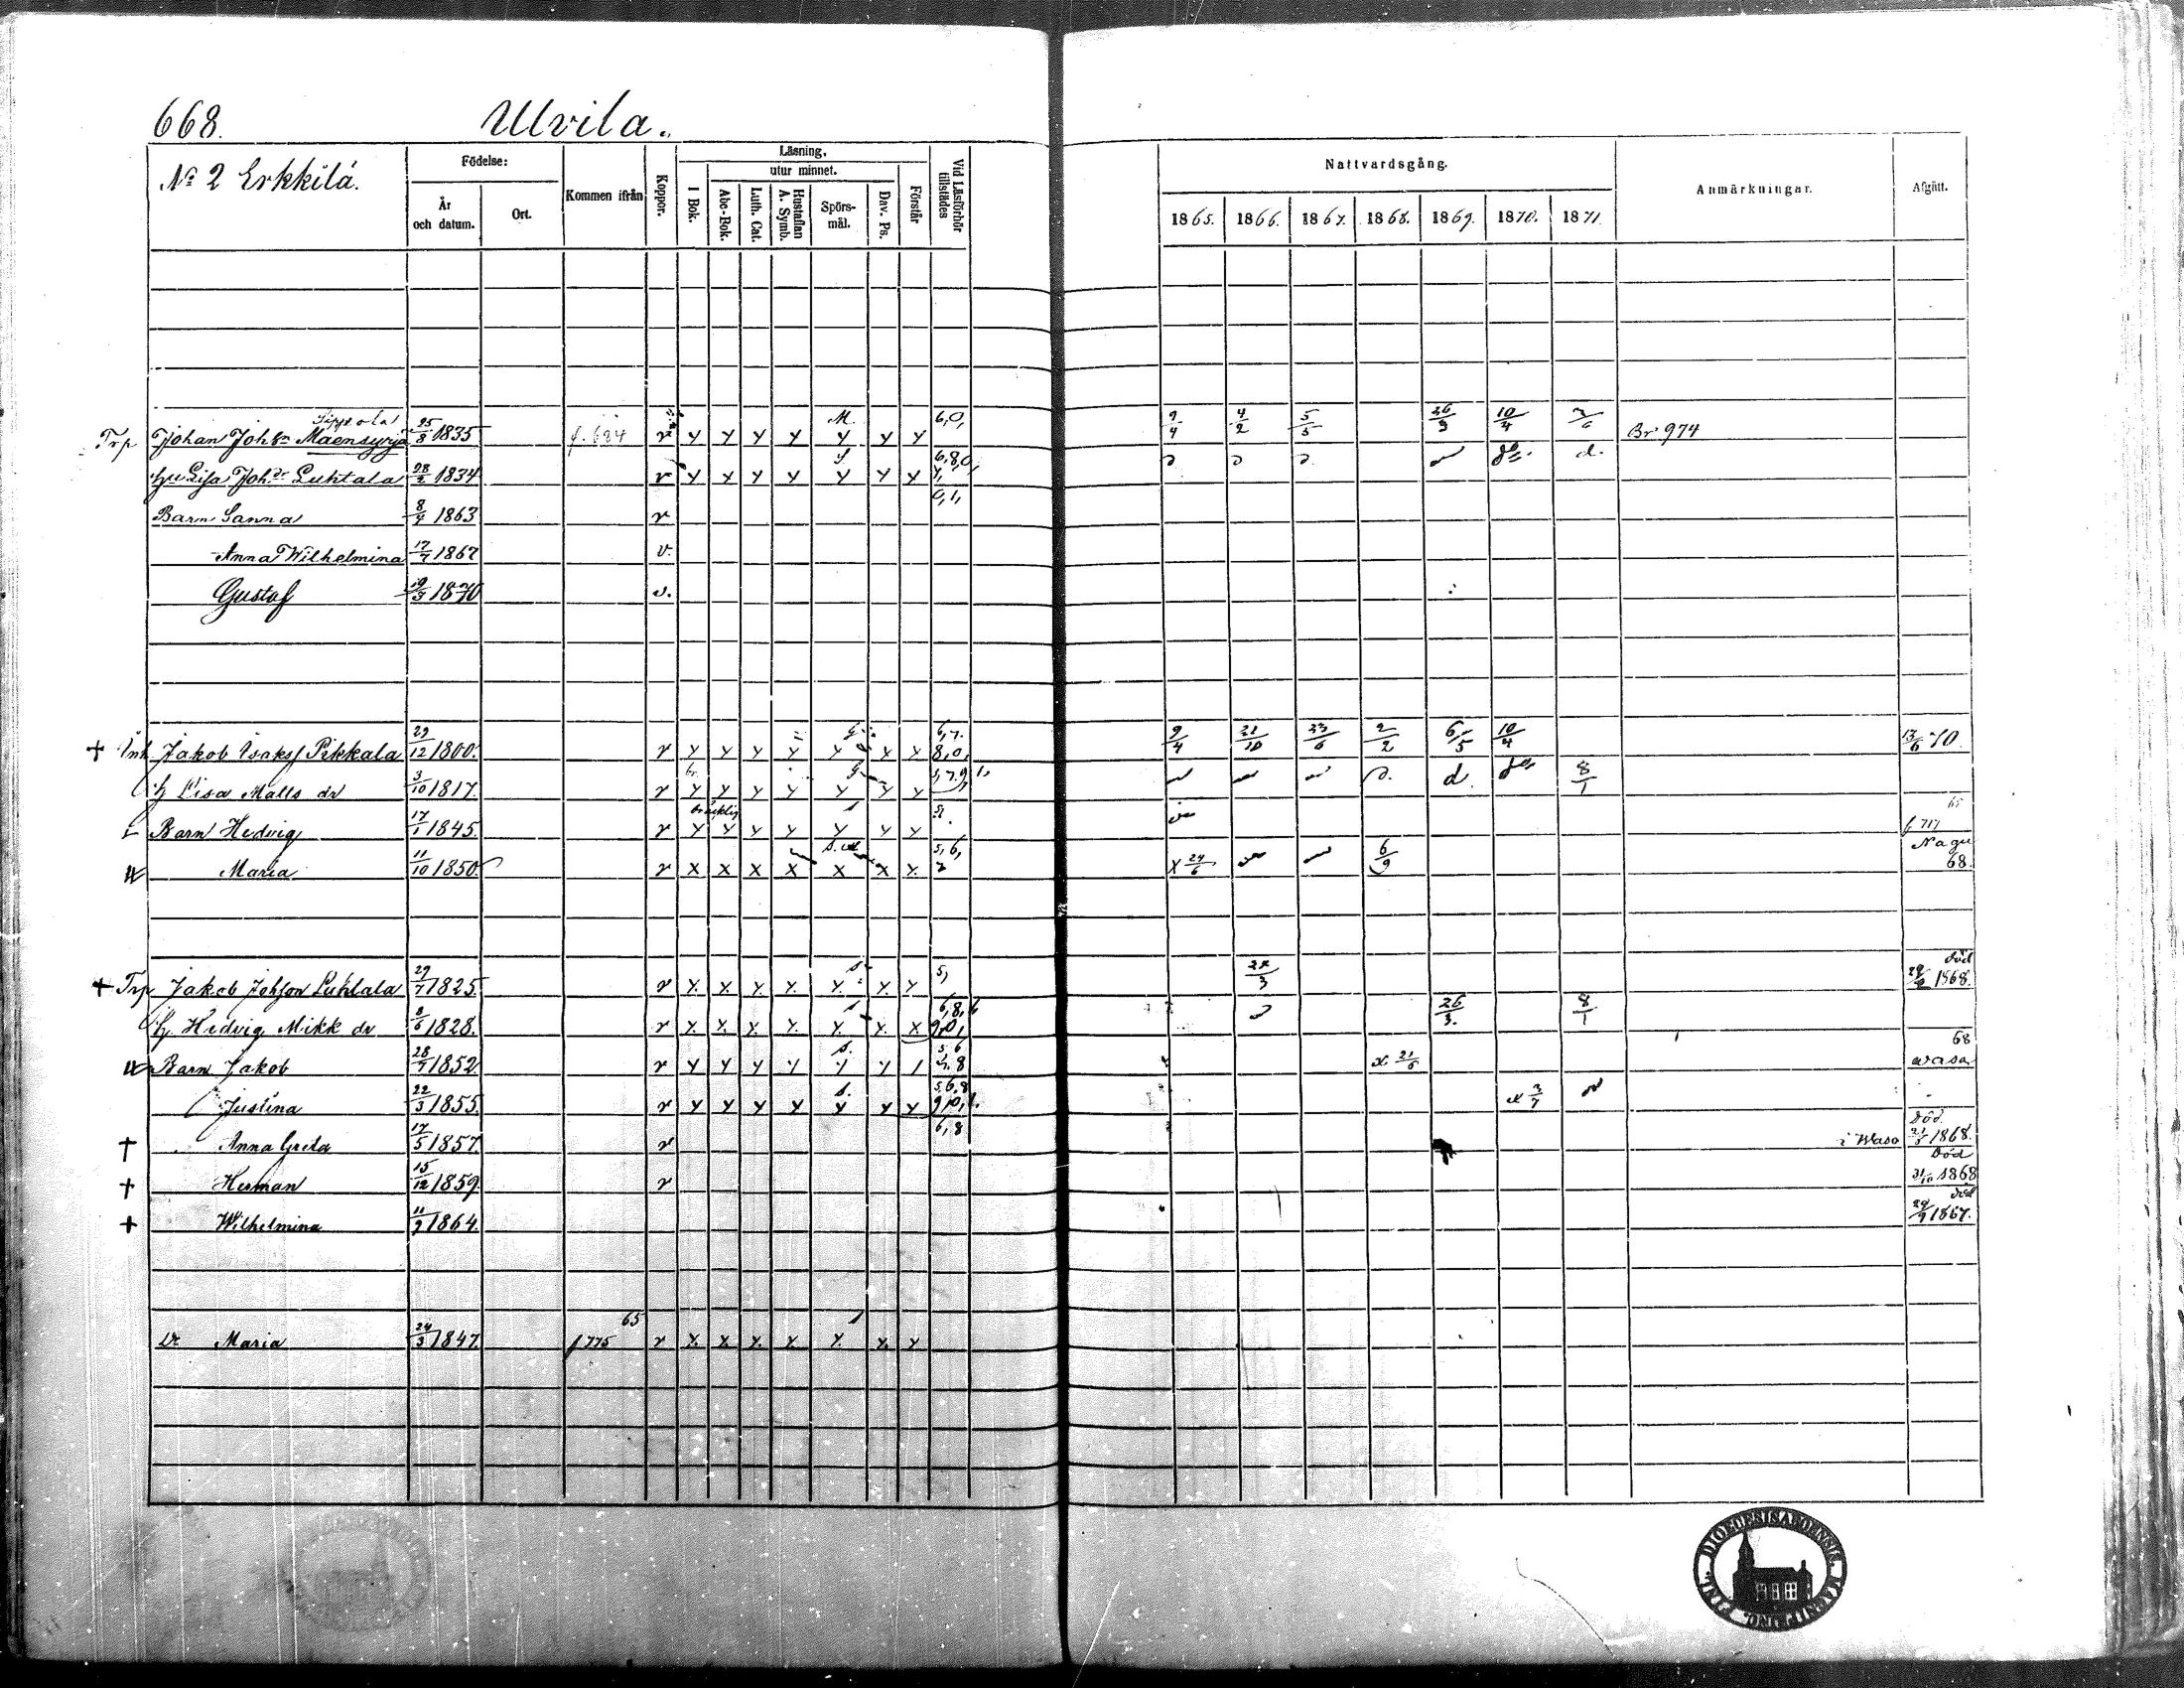 668. Ulvila.
No 2 Erkkilä.
Födelse:
År och datum.
Ort.
Kommen ifrån
Koppor.
Läsning,
utur minnet.
I Bok.
Abc-Bok.
Luth. Cat.
Hustaflan A. Symb.
Spörsmål.
Dav. Ps.
Förstår
Vid Läsförhör tillstädes
Nattvardsgång.
1865. 1866. 1867. 1868. 1869. 1870. 1871.
Anmärkningar.
Afgått.
Sippola
Trp Johan Johsn Maensyrjä 25/8 1835 f. 624 v y y y y M. y y y 6,0, 9/4 4/2 5/5 26/3 10/4 Br 974
hu Lisa Johdr Luhtala 28/2 1834 v y y y y y y y 6,8,0, d.
Barn Sanna 8/4 1863 v 0,1,
Anna Wilhelmina 17/7 1867 v.
Gustaf 19/3 1870 v.
+ Inh Jakob Isaksf Pikkala 29/12 1800. v y y y y y x x 6,7. 8,0, 9/4 21/10 23/6 2/2 6/5 10/4 13/6 70.
h Lisa Matts dr 3/10 1817. v y y y y y y y d. d. 8/1
Barn Hedvig 17/1 1845. v y y y y y y y f 717 65
Maria 11/10 1850. v x x x x x x x. 5,6, x 24/6 6/9 Nagu 68.
+ Trp Jakob Johson Luhtala 29/7 1825. v y. x. y. y. y. y. y 5, 22/3 död 1868.
h Hedvig Mikk dr 8/6 1828. v y. y. y. y. y. y. x 6,8, 9,0, 26/3. 8/1
Barn Jakob 28/7 1852 v y y y y s. y y 5,6 7.8 x 21/6 68 Wasa
Justina 22/3 1855. v y y y y s. y y y 5,6,8 9,0,1. x 3/7
+ Anna Greta 17/5 1857. v 6,8 i Wasa död. 1868.
+ Herman 15/12 1859. v Död 31/10 1868
+ Wilhelmina 11/9 1864. död 1867.
Dr Maria 24/3 1847. f 775 65 v y. x. y. y. y. y. y
DIOECESIS ABOENSIS MAGNI PRINC. FINL.